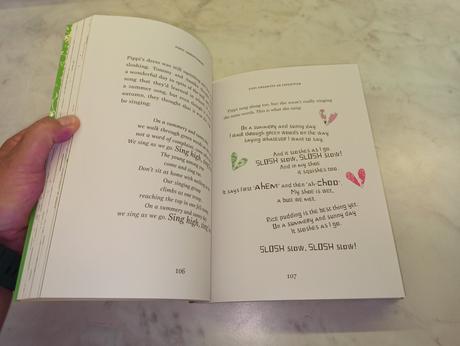 Pippi's dress was still
sloshing. Tommy and
a wonderful day in spite of the
song that they'd learned in
a summer song, but even though
autumn, they thought that it was
be singing:
On a summery and sunny
we walk through green woods
not a word of complaint,
We sing as we go. Sing high,
The young among
come and sing
Don't sit at home with nothing
Our singing group
climbs as one troop,
reaching the top in one fell
On a summery and sunny day
we sing as we go. Sing high,
106
PIPPI
Pippi sang along too, but she wasn't really singing
the same words. This is what she sang:
On a summery and sunny day
I stroll through green woods on the way
Saying whatever I want to say.
And it sloshes as I go
SLOSH slow, SLOSH slow!
And in my shoe
it squishes too.
It says first "AHEM" and then "ah-CHOO".
My shoe is wet,
a bus we met.
Rice pudding is the best thing yet.
On a summery and sunny day
It sloshes as I go.
SLOSH slow, SLOSH slow!
107